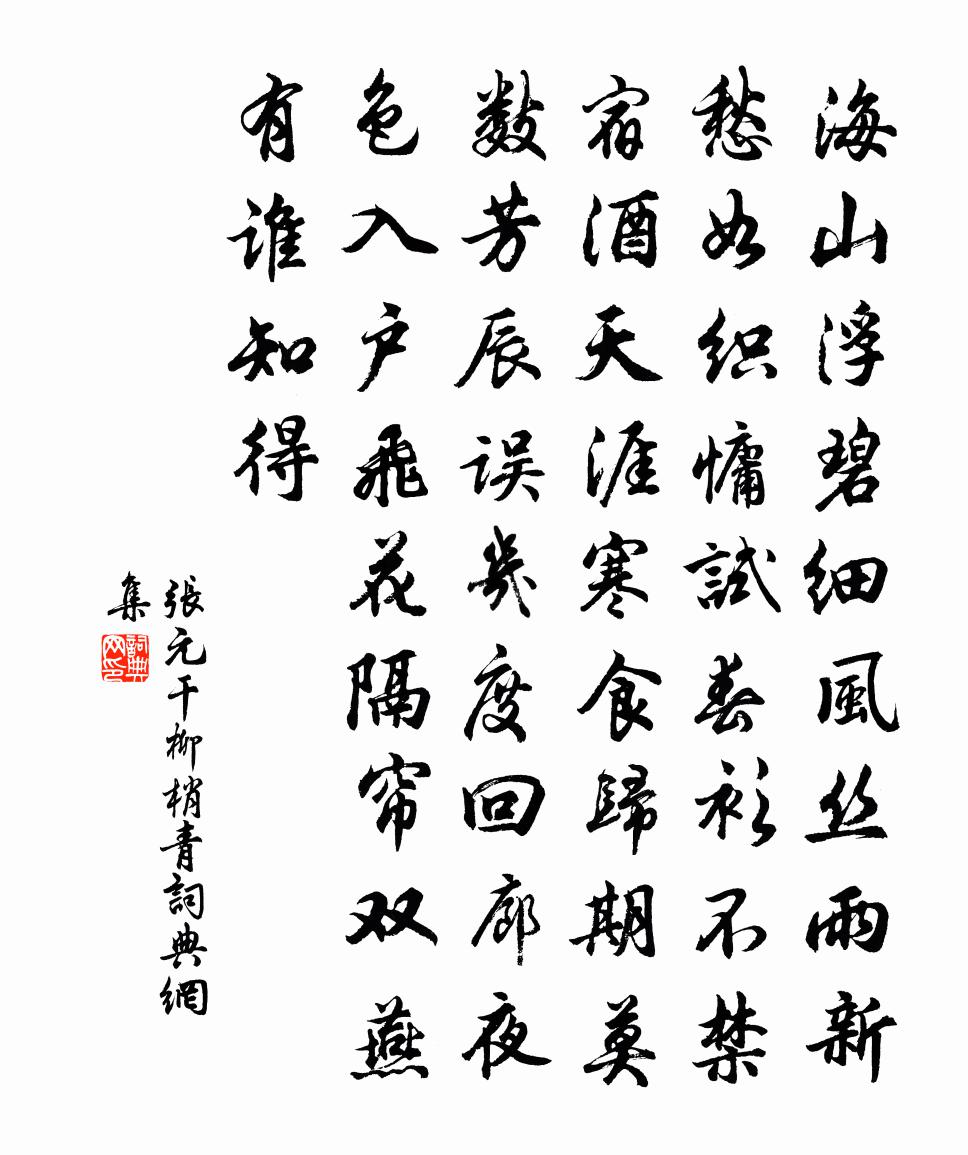 海山浮碧细風丝雨新
愁如织慵試春衫不禁
宿酒天涯寒食歸期莫
數芳辰误幾度回廊夜
色入户飛花隔帘双燕
有谁知得
張元干柳梢青詞典網
集
詞典
网印